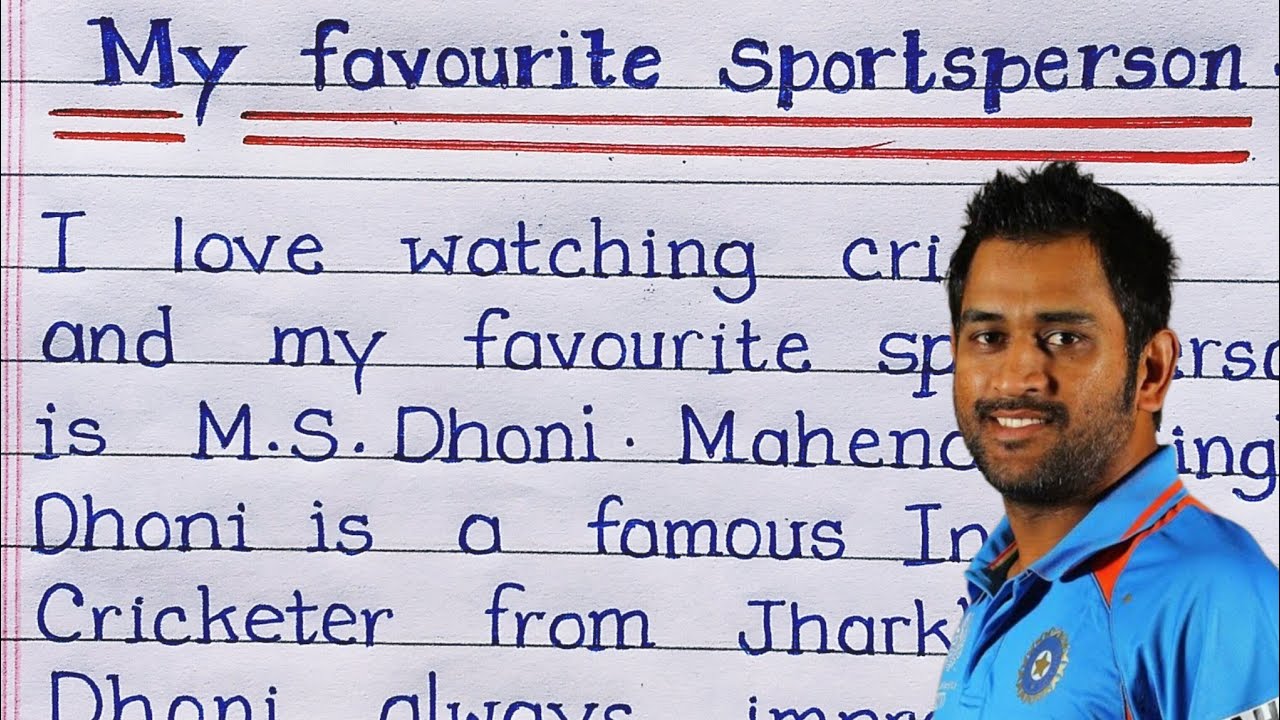 My favourite Sportsperson.
I love watching cri
and my favourite sp erso
is M.S. Dhoni. Mahend ing
Dhoni is a famous In
Cricketer from Jhark
Dhoni always impre